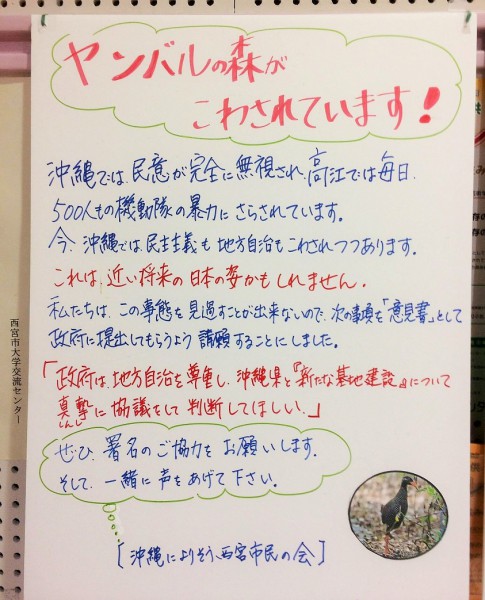 ヤンバルの森が
こわされています!
沖縄では、民意が完全に無視され、高江では毎日、
500人もの機動隊の暴力にさらされています。
今、沖縄では民主主義も地方自治もこわされつつあります。
これは、近い将来の日本の姿かもしれません。
私たちは、この事態を見過すことが出来ないので、次の事項を「意見書」として
政府に提出してもらうよう請願することにしました。
「政府は、地方自治を尊重し、沖縄県と『新たな基地建設』について
真摯に協議をして判断してほしい。」
しんし
ぜひ、署名のご協力をお願いします。
そして、一緒に声をあげて下さい。
[沖縄によりそう西宮市民の会]
西宮市大学交流センター